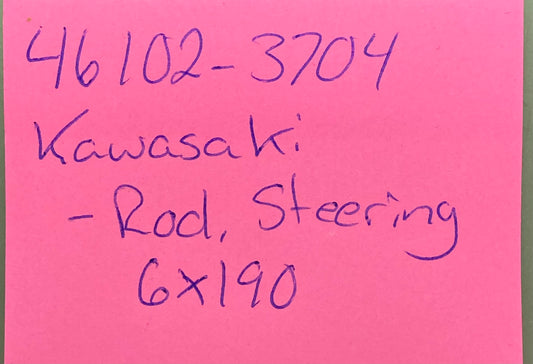 46102-3704
Kawasaki
- Rod, Steering
6x190